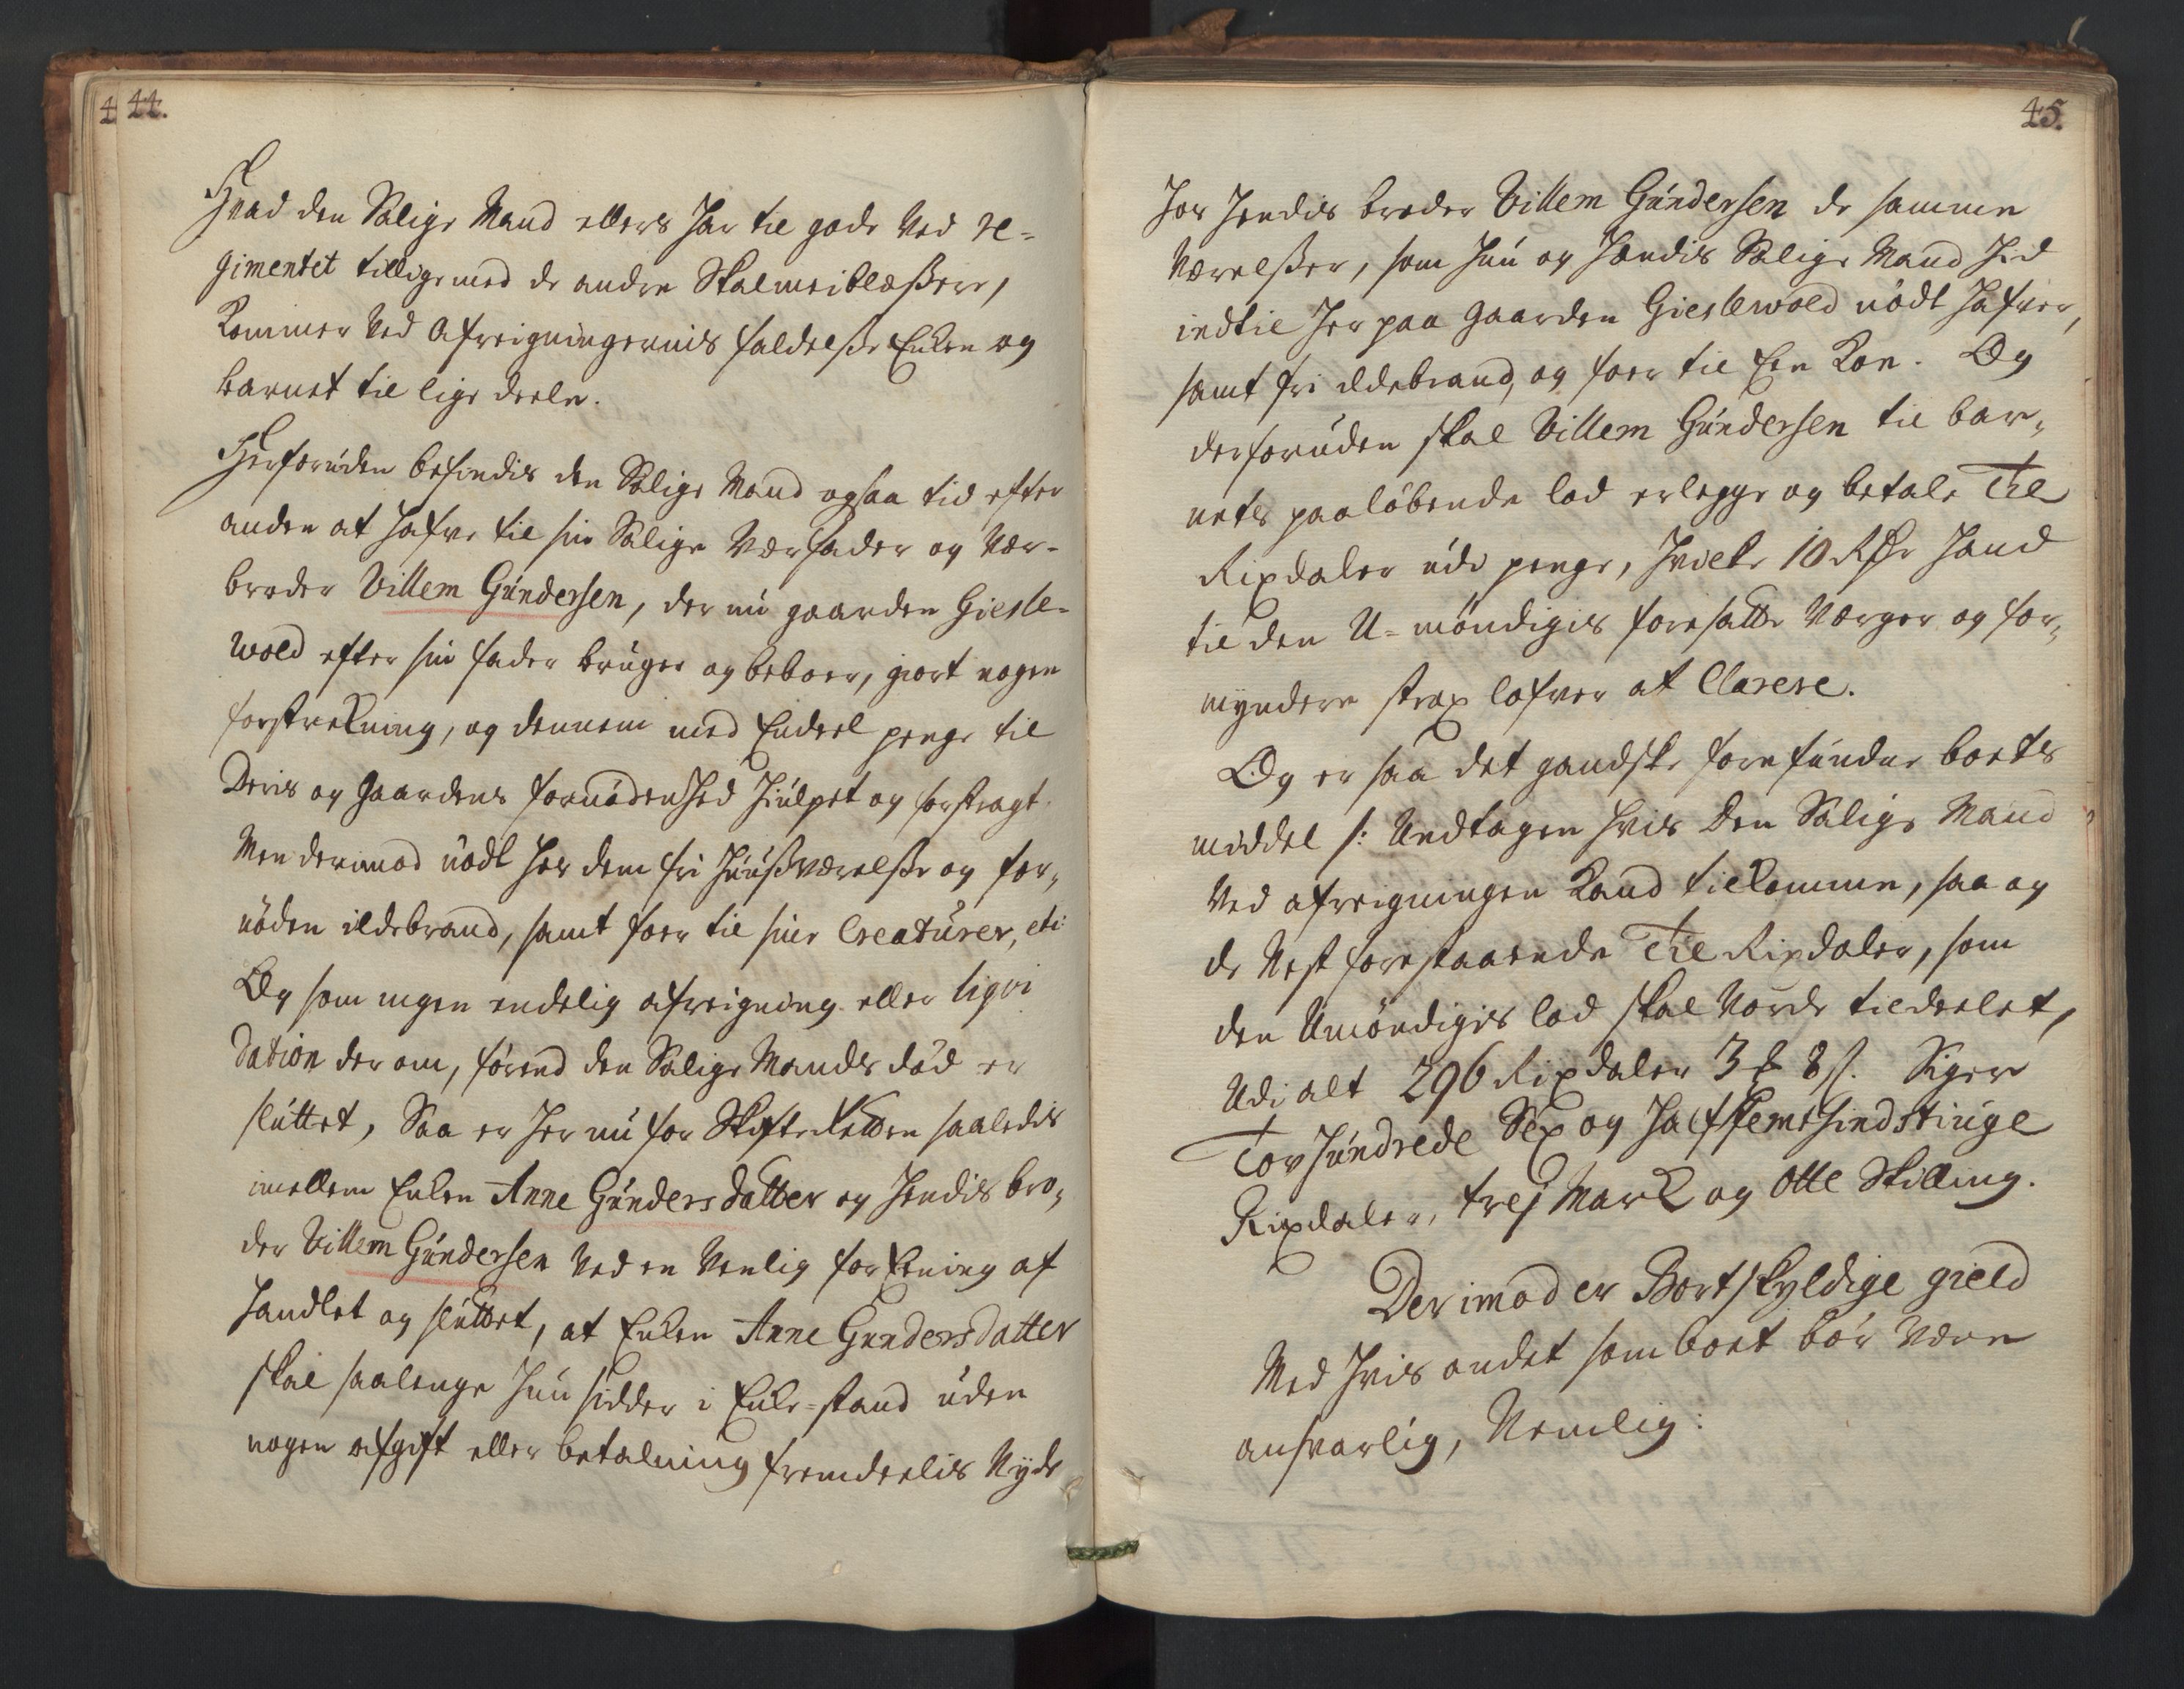 44.
Hvad den Salige Mand ellers har til gode ved re-
gimentet tilligemed de andre Skalmeiblæßere,
kommer ved Afreigningernis faldelße Enken og
barnet til lige deele.
Herforuden befindis den Salige Mand ogsaa tid efter
anden at hafve til sin Salige Værfader og Vær-
broder Villem Gundersen, der nu gaarden Giesle-
wold efter sin fader bruger og beboer, giort nogen
forstrekning, og dennem med Endeel penge til
Deris og Gaardens fornødenhed hiulpet og forstragt.
Men derimod nødt hos dem fri huusværelße og for-
nøden ildebrand, samt foer til sine Creaturer, etc:
Og som ingen endelig afreigning eller liqvi
dation der om, førend den Salige Mands død er
sluttet, Saa er her nu for Skifte Retten saaledis
imellem Enken Anne Gundersdatter og hendis bro-
der Villem Gundersen ved en venlig forEening af
handlet og sluttet, at Enken Anne Gundersdatter
skal saalenge hun sidder i Enke-stand uden
nogen afgift eller betalning fremdeelis nyde
45.
hos hendis broder Villem Gundersen de samme
værelßer, som hun og hendis Salige Mand hid
indtil her paa gaarden Gieslewold nødt hafver,
samt fri ildebrand, og foer til Een Koe. Og
derforuden skal Villem Gundersen til bar-
nets paaløbende lod erlegge og betale Tie
Rixdaler udi penge, hvilke 10 Rdr hand
til den U-mŏndigis foresatte Værger og for-
myndere strax lofver at Clarere.
Og er saa det gandske forefundne boets
middel /: Undtagen hvis den Salige Mand
ved afreigningen kand tilkomme, saa og
de Nest forestaaende Tie Rixdaler, som
den Umøndigis lod skal vorde tildeelet,
Udi alt 296 Rixdaler 3 ₰ 8 s. Siger
Tov hundrede Sex og halffemtesindstiuge
Rixdaler, trej Mark og Otte Skilling.
Derimod er Bortskyldige gield
Med hvis andet som boet bør være
ansvarlig, Nemlig: